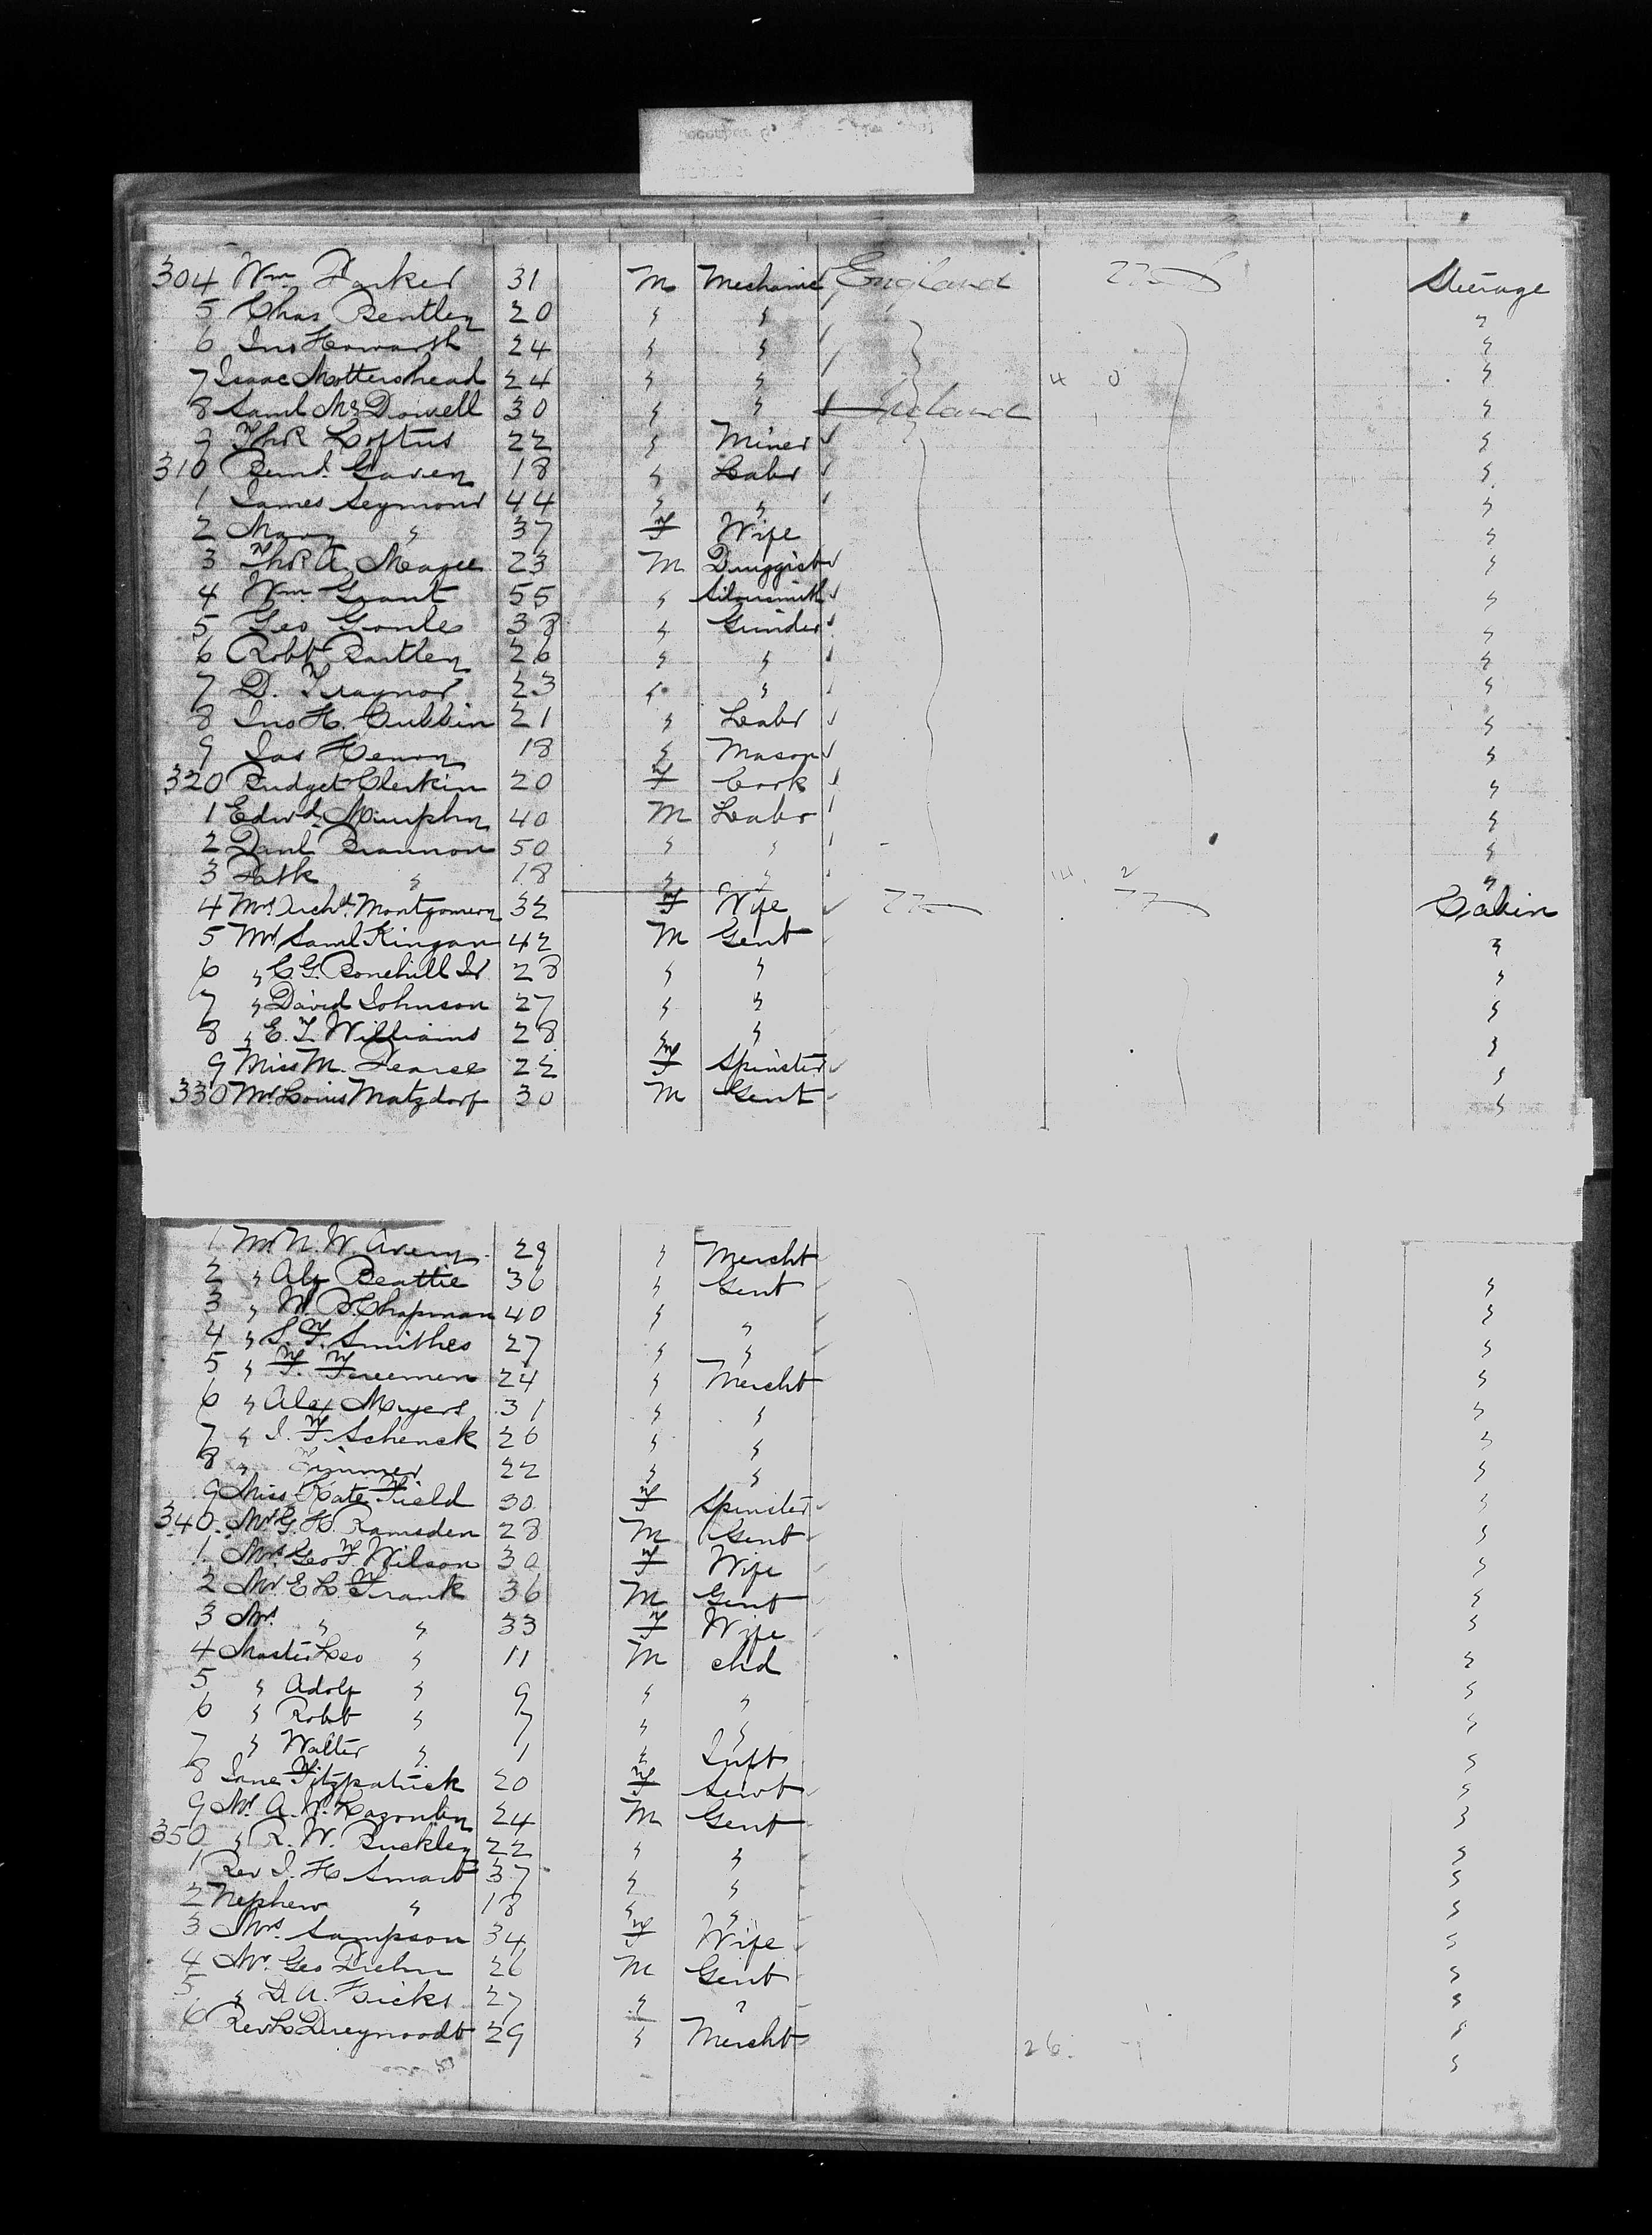 304 Wm Parker 31 M Mechanic England U.S. Steerage
5 Chas Bentley 20 " " "
6 Jno Howarth 24 " " "
7 Isaac Mottershead 24 " " 4 0 "
8 Saml McDowell 30 " " Ireland "
9 Thos Loftus 22 " Miner "
310 Bernd Gaven 18 " Labr "
1 James Seymour 44 " " "
2 Mary " 37 F Wife "
3 Thos A. Magee 23 M Druggist "
4 Wm Grant 55 " Silversmith "
5 Geo Goule 38 " Grinder "
6 Robt Bartley 26 " " "
7 D. Traynor 23 " " "
8 Jno H. Cubbin 21 " Labr "
9 Jas Henry 18 " Mason "
320 Bridget Clerkin 20 F Cook "
1 Edwd Murphy 40 M Labr "
2 Danl Brannon 50 " " "
3 Patk " 18 " " 14. 2 "
4 Mrs Archd Montgomery 32 F Wife U.S. U.S. Cabin
5 Mr Saml Kingan 42 M Gent "
6 " C. G. Bonehill Jr 28 " " "
7 " David Johnson 27 " " "
8 " E. T. Williams 28 " " "
9 Miss M. Pearce 22 F Spinster "
330 Mr Louis Matzdorf 30 M Gent "
1 Mr N. W. Avery 29 " Mercht
2 " Alx Beattie 36 " Gent "
3 " W. B. Chapman 40 " " "
4 " S. F. Smithes 27 " " "
5 " F. Freemen 24 " Mercht "
6 " Alex Myers 31 " " "
7 " J. F. Schenck 26 " " "
8 " Zimmer 22 " " "
9 Miss Kate Field 30 F Spinster "
340 Mr G. H. Ramsden 28 M Gent "
1 Mrs Geo F. Wilson 30 F Wife "
2 Mr E L Frank 36 M Gent "
3 Mrs " " 33 F Wife "
4 Master Leo " 11 M chd "
5 " Adolf " 9 " " "
6 " Robt " 7 " " "
7 " Walter " 1 " Inft "
8 Jane Fitzpatrick 20 F Servt "
9 Mr A. W. 24 M Gent "
350 " R. W. Buckley 22 " " "
1 Rev J. H. Smart 37 " " "
2 Nephew " 18 " " "
3 Mrs Sampson 34 F Wife "
4 Mr Geo Diehm 26 M Gent "
5 " D. A. Hicks 27 " " "
6 Rev L 29 " Mercht 26. 1 "